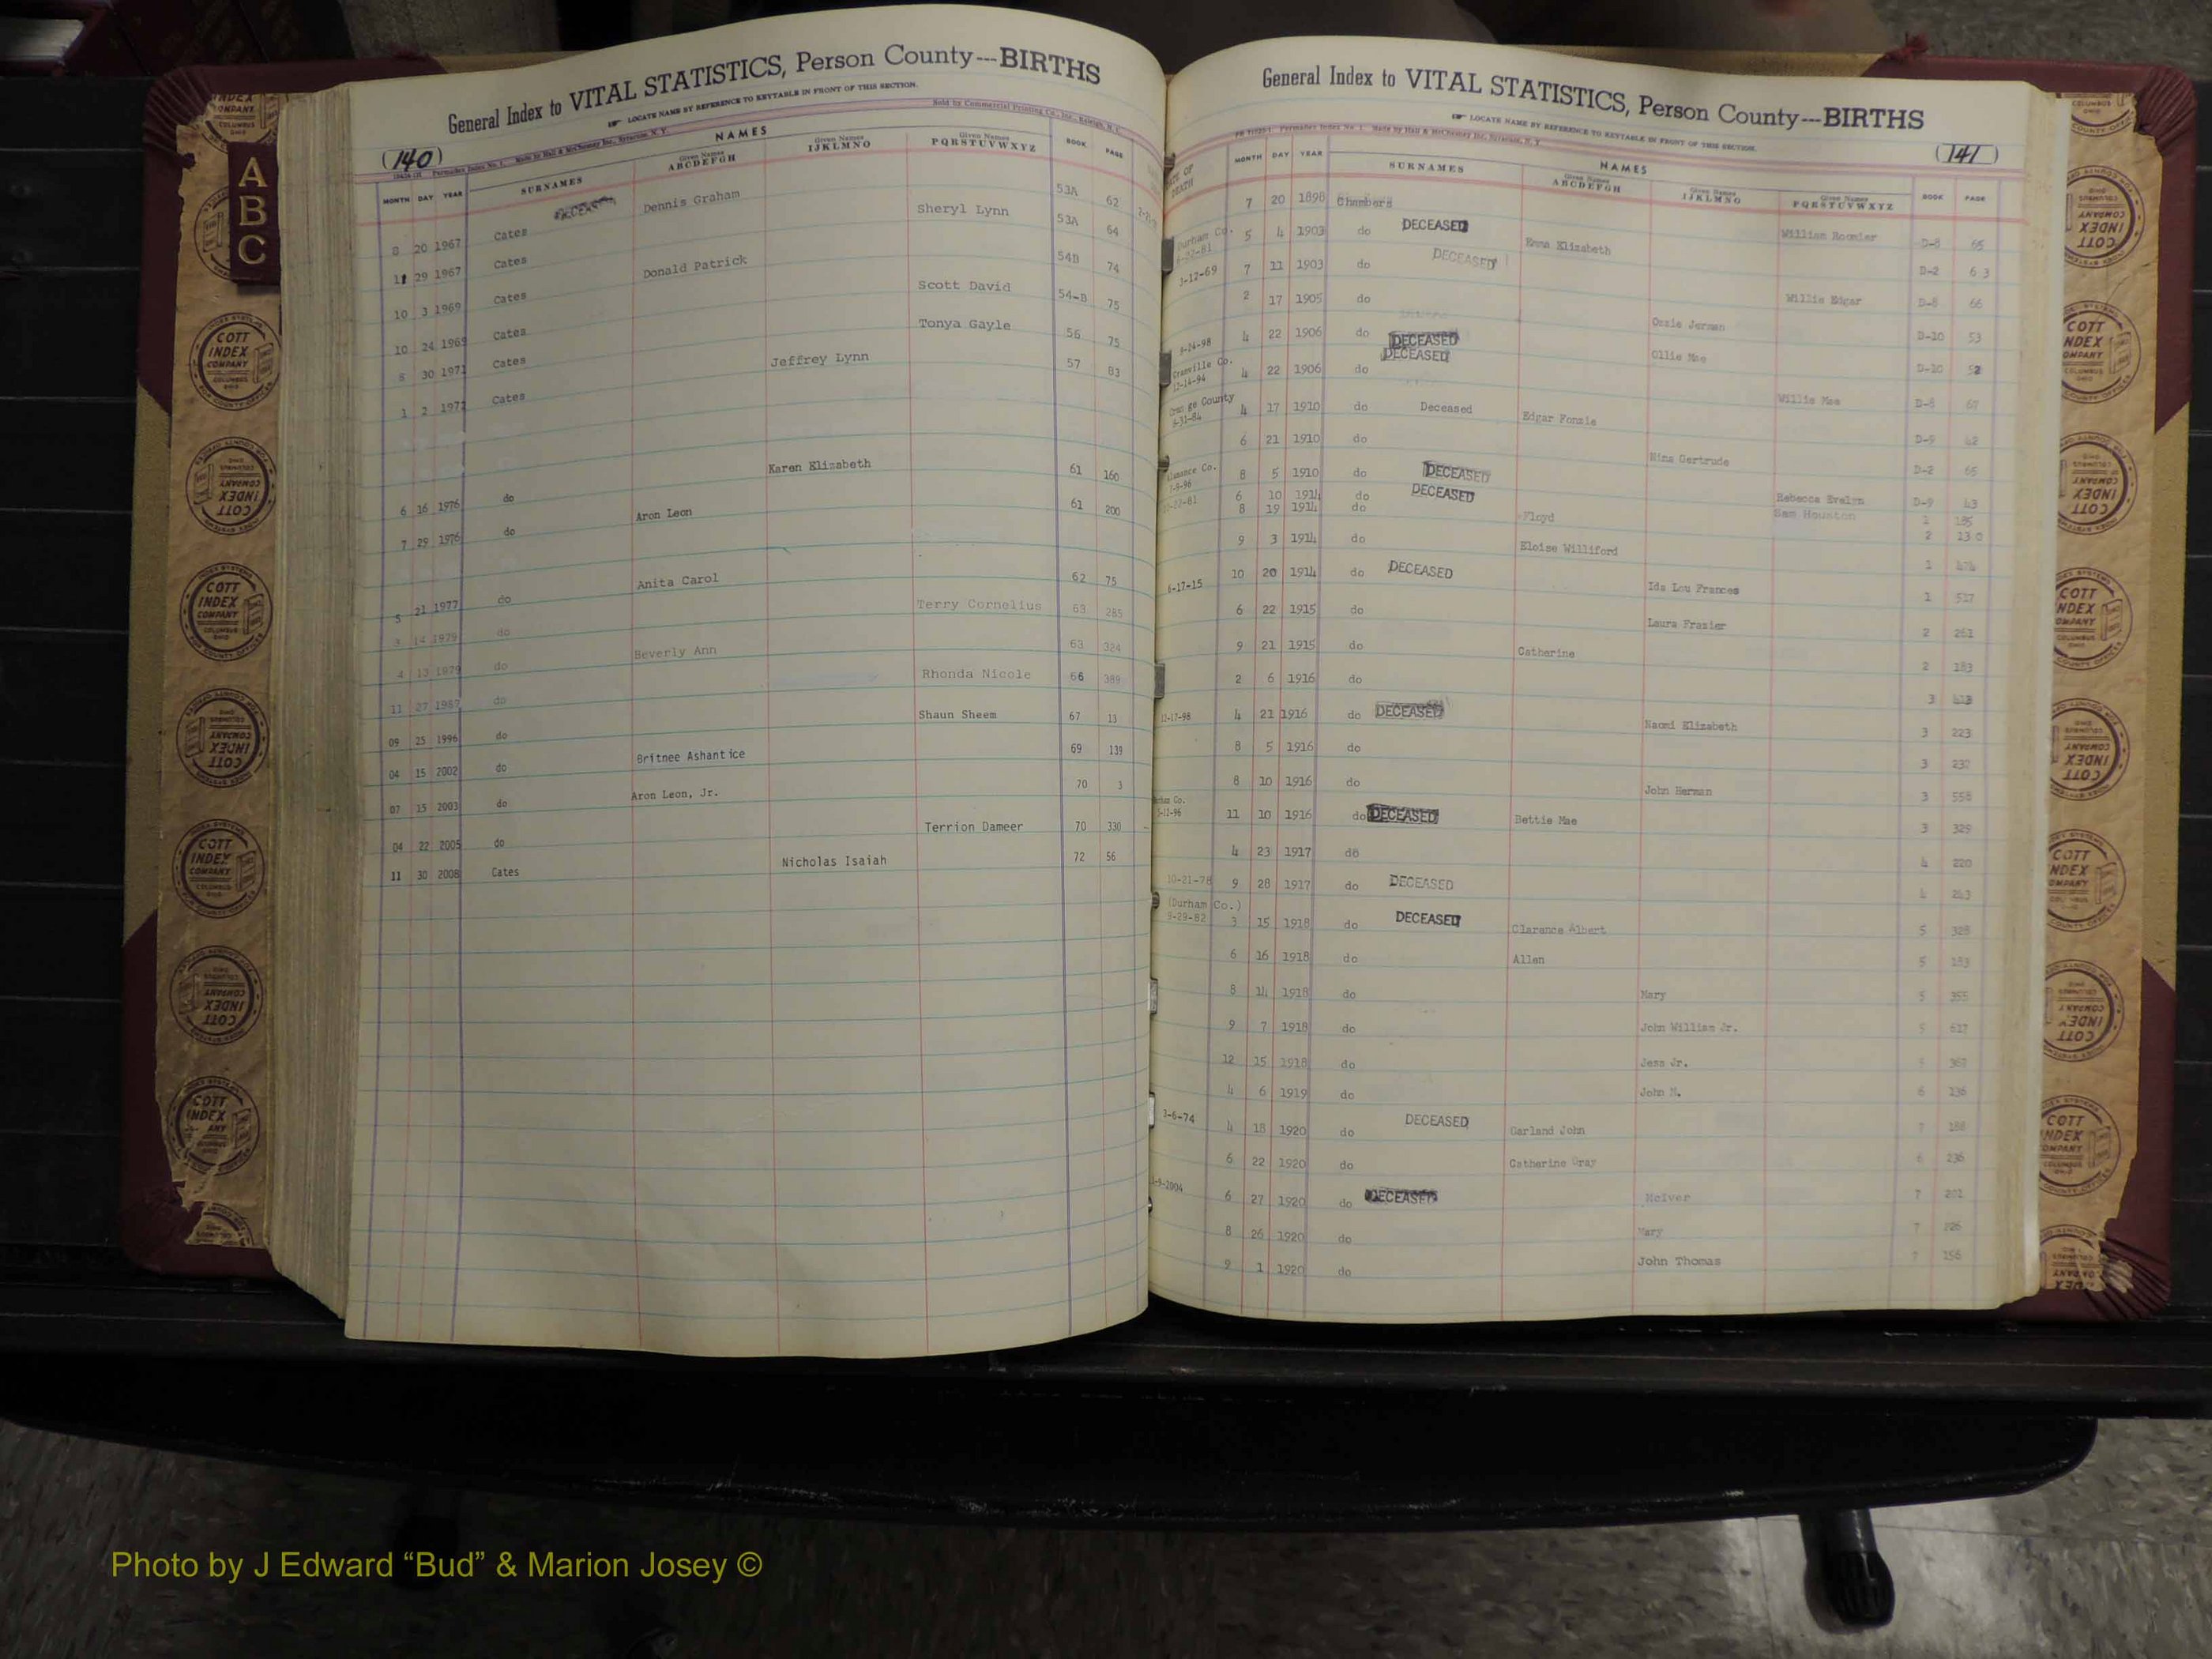 General Index to VITAL STATISTICS, Person County---BIRTHS
LOCATE NAME BY REFERENCE TO KEYTABLE IN FRONT OF THIS SECTION.
Sold by Commercial Printing Co., Inc., Raleigh, N. C.
(140)
NAMES
MONTH DAY YEAR SURNAMES Given Names ABCDEFGH Given Names IJKLMNO Given Names PQRSTUVWXYZ BOOK PAGE
8 20 1967 Cates DECEASED Dennis Graham 53A 62
11 29 1967 Cates Sheryl Lynn 53A 64
10 3 1969 Cates Donald Patrick 54B 74
10 24 1969 Cates Scott David 54-B 75
8 30 1971 Cates Tonya Gayle 56 75
1 2 1972 Cates Jeffrey Lynn 57 83
6 16 1976 do Karen Elizabeth 61 160
7 29 1976 do Aron Leon 61 200
5 21 1977 do Anita Carol 62 75
3 14 1979 do Terry Cornelius 63 285
4 13 1979 do Beverly Ann 63 324
11 27 1987 do Rhonda Nicole 66 389
09 25 1996 do Shaun Sheem 67 13
04 15 2002 do Britnee Ashantice 69 139
07 15 2003 do Aron Leon, Jr. 70 3
04 22 2005 do Terrion Dameer 70 330
11 30 2008 Cates Nicholas Isaiah 72 56
General Index to VITAL STATISTICS, Person County---BIRTHS
LOCATE NAME BY REFERENCE TO KEYTABLE IN FRONT OF THIS SECTION.
(141)
NAMES
MONTH DAY YEAR SURNAMES Given Names ABCDEFGH Given Names IJKLMNO Given Names PQRSTUVWXYZ BOOK PAGE
7 20 1898 Chambers William Roomier D-8 65
5 4 1903 do DECEASED Emma Elizabeth D-2 63
3-12-69 7 11 1903 do DECEASED Willie Edgar D-8 66
2 17 1905 do Ozzie Jerman D-10 53
8-24-98 4 22 1906 do DECEASED Ollie Mae D-10 52
Granville Co. 12-14-94 4 22 1906 do DECEASED Willie Mae D-8 67
4 17 1910 do Deceased Edgar Fonzie D-9 42
6 21 1910 do Nina Gertrude D-2 65
8 5 1910 do DECEASED Rebecca Evelyn D-9 43
6 10 1914 do DECEASED Sam Houston 1 185
8 19 1914 do Floyd 2 130
9 3 1914 do Eloise Williford 1
6-17-15 10 20 1914 do DECEASED Ida Lou Frances 1 517
6 22 1915 do Laura Frazier 2 261
9 21 1915 do Catherine 2 183
2 6 1916 do 3
12-17-98 4 21 1916 do DECEASED Naomi Elizabeth 3 223
8 5 1916 do 3 232
8 10 1916 do John Herman 3 558
11 10 1916 do DECEASED Bettie Mae 3 329
4 23 1917 do 4 220
10-21-78 9 28 1917 do DECEASED
(Durham Co.)
9-29-82 3 15 1918 do DECEASED Clarance Albert 5 328
6 16 1918 do Allen 5 183
8 14 1918 do Mary 5 355
9 7 1918 do John William Jr. 5 617
12 15 1918 do Jess Jr.
4 6 1919 do John N. 6 236
3-6-74 4 18 1920 do DECEASED Garland John 7 188
6 22 1920 do Catherine Gray 6 236
6 27 1920 do DECEASED McIver 7 202
8 26 1920 do Mary 7
9 1 1920 do John Thomas 7 156
A
B
C
COTT INDEX COMPANY
COLUMBUS OHIO
Photo by J Edward “Bud” & Marion Josey ©